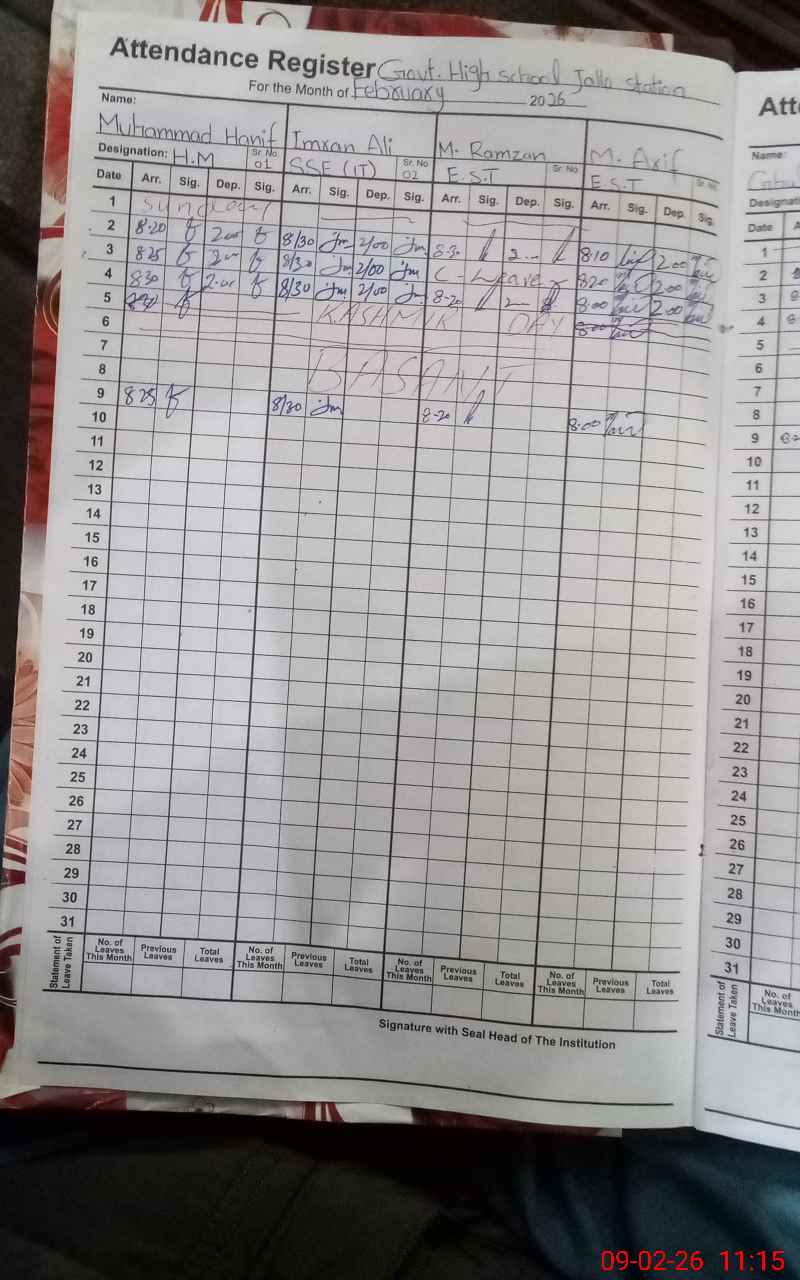 Attendance Register Govt. High school Jalla station
For the Month of February 2026
Name:
Muhammad Hanif Imran Ali M. Ramzan M. Arif
Designation: H.M Sr. No 01 SSE (IT) Sr. No 02 E.S.T Sr. No E.S.T Sr. No
Date Arr. Sig. Dep. Sig. Arr. Sig. Dep. Sig. Arr. Sig. Dep. Sig. Arr. Sig. Dep. Sig.
1 Sunday
2 8.20 8/30 2/00 8.30 8.10 2.00
3 8.25 8/30 2/00 C - Leave 8.20 2.00
4 8.30 8/30 2/00 8.20 8.00 2.00
5 KASHMIR DAY 8.00
6
7
8 BASANT
9 8.25 8/30 8.20 8.00
10
11
12
13
14
15
16
17
18
19
20
21
22
23
24
25
26
27
28
29
30
31
Statement of Leave Taken No. of Leaves This Month Previous Leaves Total Leaves No. of Leaves This Month Previous Leaves Total Leaves No. of Leaves This Month Previous Leaves Total Leaves No. of Leaves This Month Previous Leaves Total Leaves
Signature with Seal Head of The Institution
Atte
Name:
Designati
Date A
1
2
3
4
5
6
7
8
9
10
11
12
13
14
15
16
17
18
19
20
21
22
23
24
25
26
27
28
29
30
31
Statement of Leave Taken No. of Leaves This Month
09-02-26 11:15